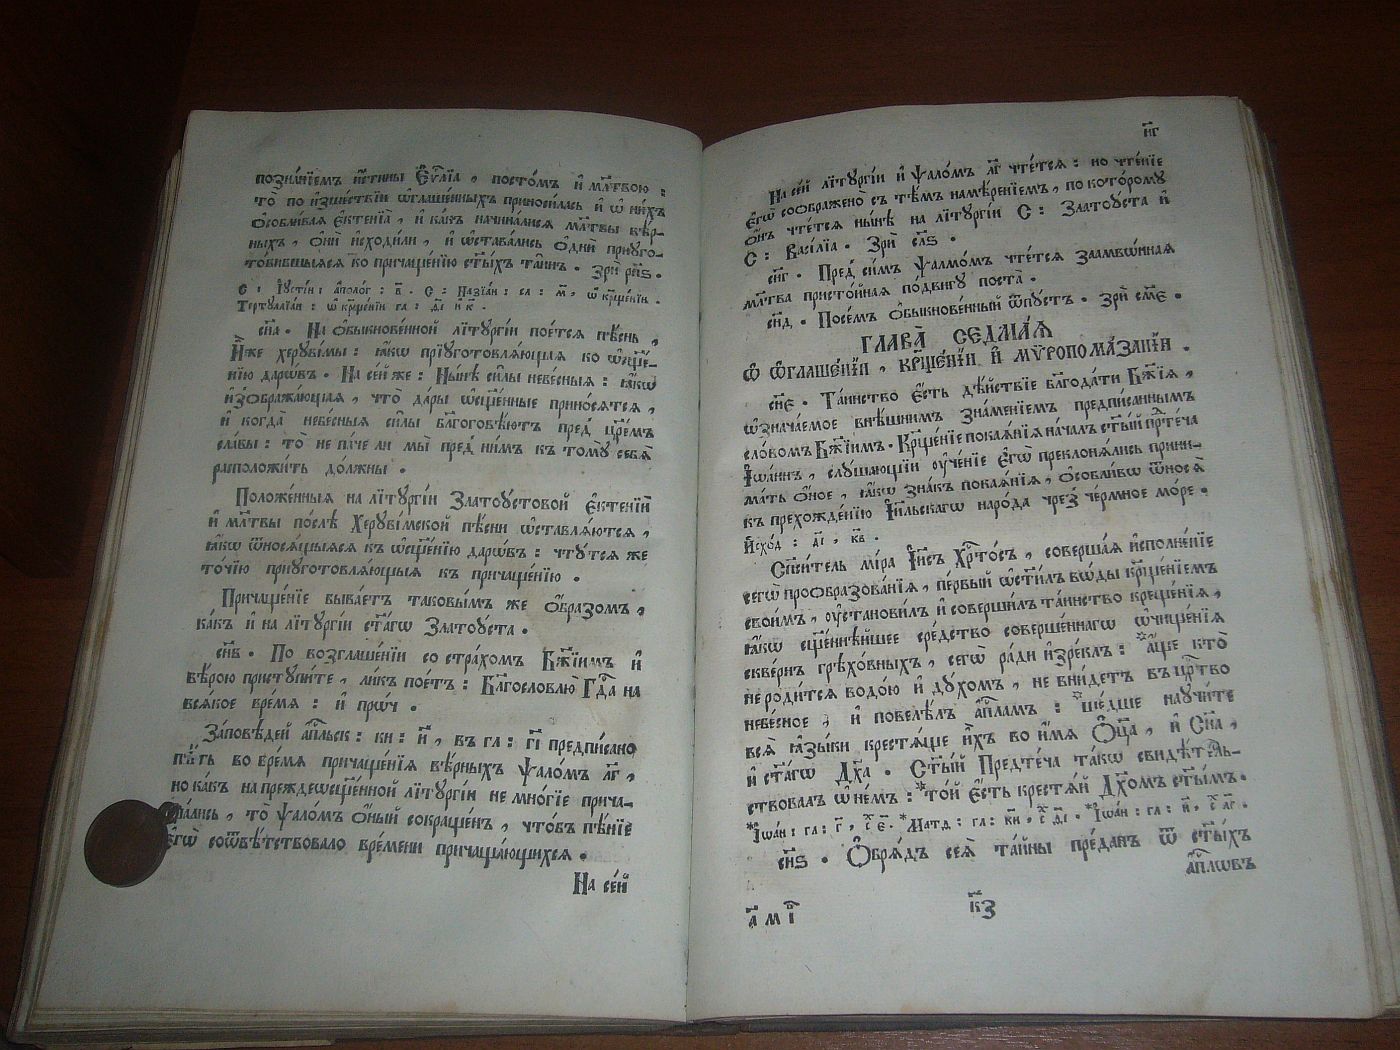 позна́нїемъ и҆́стины Е҆ѵⷢ҇лїа, посто́мъ и҆ мл҃твою:
то̀ по и҆зше́ствїи ѡ҆глаше́нныхъ приноси́лась и҆ ѡ҆ ни́хъ
ѻ҆со́бливая є҆ктенїа̀, и҆ ка́къ начина́лися мл҃твы вѣ́р-
ныхъ, ѻ҆нѝ и҆сходи́ли, и҆ ѡ҆става́лись ѻ҆днѝ прїуго-
то́бившыяся ко причаще́нїю ст҃ы́хъ та̂инъ. Зрѝ рн҃ѕ.
С: І҆усті́н: а҆поло́г: в҃. С: Назїа́н: сл: м҃, ѡ҆ кр҃ще́нїи.
Тертуллїа́н: ѡ҆ кр҃ще́нїи гл: д҃і и҆ к҃.
сн҃а. На ѻ҆быкнове́нной лїтургі́и пое́тся пѣ́снь,
И҆́же херуві́мы: ꙗ҆́кѡ прїуготовля́ющыя ко ѡ҆сщ҃е́-
нїю даро́въ. На се́й же: Ны́нѣ си̑лы небе́сныя: ꙗ҆́кѡ
и҆з̾ѡбража́ющая, что̀ да́ры ѡ҆сщ҃е́нные прино́сятся,
и҆ когда̀ небе́сныя си̑лы бл҃гоговѣ́ютъ пред̾ цр҃е́мъ
сла́вы: то̀ не па́че ли мы̀ пред̾ ни́мъ къ тому̀ себѐ
расположи́ть должны̀.
Положе́нныя на лїтургі́и Златоу́стовой є҆ктенїѝ
и҆ мл҃твы по́слѣ Херуві́мской пѣ́сни ѡ҆ставля́ются,
ꙗ҆́кѡ ѿнося́щыяся къ ѡ҆сщ҃е́нїю даро́въ: чту́тся же
то́чїю прїуготовля́ющыя къ причаще́нїю.
Причаще́нїе быва́етъ таковы́мъ же ѻ҆́бразомъ,
ка́къ и҆ на лїтургі́и ст҃а́гѡ Златоу́ста.
сн҃в. По возглаше́нїи со стра́хомъ Бж҃їимъ и҆
вѣ́рою пристꙋпи́те, ли́къ пое́тъ: Бл҃гословлю̀ Гд҇а на
вся́кое вре́мя: и҆ про́ч.
За́повѣдей а҆пⷭ҇льск: кн: и҃, въ гл: г҃і предпи́сано
пѣ́ть во вре́мя причаще́нїя вѣ́рныхъ ѱало́мъ л҃г,
но ка́къ на преждеѡсщ҃е́нной лїтургі́и не мно́гїе прича-
ща́лись, то̀ ѱало́мъ ѻ҆́ный сокраще́нъ, что́бъ пѣ́нїе
є҆гѡ̀ соѿвѣ́тствовало вре́мени причаща́ющихся.
На се́й
н҃г
На се́й лїтургі́и и҆ ѱало́мъ л҃г чте́тся: но чте́нїе
є҆гѡ̀ соѻбра́жено съ тѣ́мъ намѣ́ренїемъ, по кото́рому
ѻ҆́нъ чте́тся ны́нѣ на лїтургі́и С: Златоу́ста и҆
С: Васі́лїа. Зрѝ сл҃ѕ.
сн҃г. Пред̾ си́мъ ѱалмо́мъ чте́тся заамвѡ́нная
мл҃тва присто́йная по́двигу поста̀.
сн҃д. Посе́мъ ѻ҆быкнове́нный ѿпу́стъ. Зрѝ см҃є.
ГЛАВА̀ СЕДМА́Я
Ѡ҆ Ѡ҆ГЛАШЕ́НЇИ, КР҃ЩЕ́НЇИ И҆ МѴРОПОМА́ЗАНЇИ.
сн҃є. Та́инство є҆́сть дѣ́йствїе бл҃года́ти Бж҃їя,
ѡ҆знача́емое внѣ́шнимъ зна́менїемъ предпи́саннымъ
сло́вомъ Бж҃їимъ. Кр҃ще́нїе покая́нїя на́чалъ ст҃ы́й прⷣте́ча
І҆ѡа́ннъ, слу́шающїи ѹ҆че́нїе є҆гѡ̀ преклоня́лись прини-
ма́ть ѻ҆́ное, ꙗ҆́кѡ зна́къ покая́нїя, ѻ҆со́бливѡ ѿнося̀
къ прехожде́нїю І҆и҃льскагѡ наро́да чрез̾ че́рмное мо́ре.
И҆схо́д: д҃і, к҃в.
Сп҃си́тель мі́ра І҆и҃съ Хрⷭ҇то́съ, соверша́я и҆сполне́нїе
сегѡ̀ проѻбразова́нїя, пе́рвый ѡ҆ст҃и́лъ во́ды кр҃ще́нїемъ
свои́мъ, ѹ҆станови́лъ и҆ соверши́лъ та́инство креще́нїя,
ꙗ҆́кѡ сщ҃е́ннѣйшее сре́дство соверше́ннагѡ ѡ҆чище́нїя
скве́рнъ грѣхо́вныхъ, сегѡ̀ ра́ди и҆зре́клъ: *а҆́ще кто̀
не роди́тся водо́ю и҆ ду́хомъ, не вни́детъ въ цр҇тво
небе́сное, и҆ повелѣ́лъ а҆пⷭ҇ламъ: *ше́дше научи́те
всѧ̀ ꙗ҆зы́ки крестя́ще и҆́хъ во и҆́мя Ѻ҆ц҃а̀, и҆ Сн҃а,
и҆ ст҃а́гѡ Дх҃а. Ст҃ы́й Предте́ча та́кѡ свидѣ́тель-
ствовалъ ѡ҆ не́мъ: *то́й є҆́сть крестя́й Дх҃омъ ст҃ы́мъ.
*І҆ѡа́н: гл: г҃, с҃т є҃. *Матѳ: гл: к҃и, с҃т д҃і. *І҆ѡа́н: гл: а҃, с҃т л҃г.
сн҃ѕ. Ѻ҆бря́дъ сея̀ та́йны пре́данъ ѿ ст҃ы́хъ
а҆пⷭ҇лѡвъ
а҃ м г҃і
к҃з